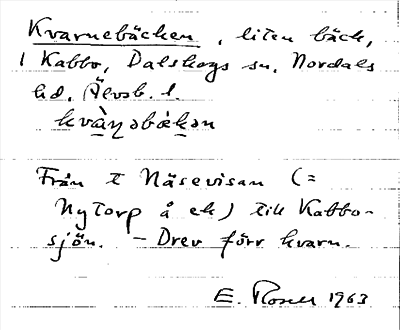 Kvarnebäcken, liten bäck,
i Kabbo, Dalskogs sn, Nordals
hd, Älvsb. l.
kvàṇəbäkən
Från t Näsevisan (=
Nytorp å ek) till Kabbo-
sjön. – Drev förr kvarn.
E. 1963